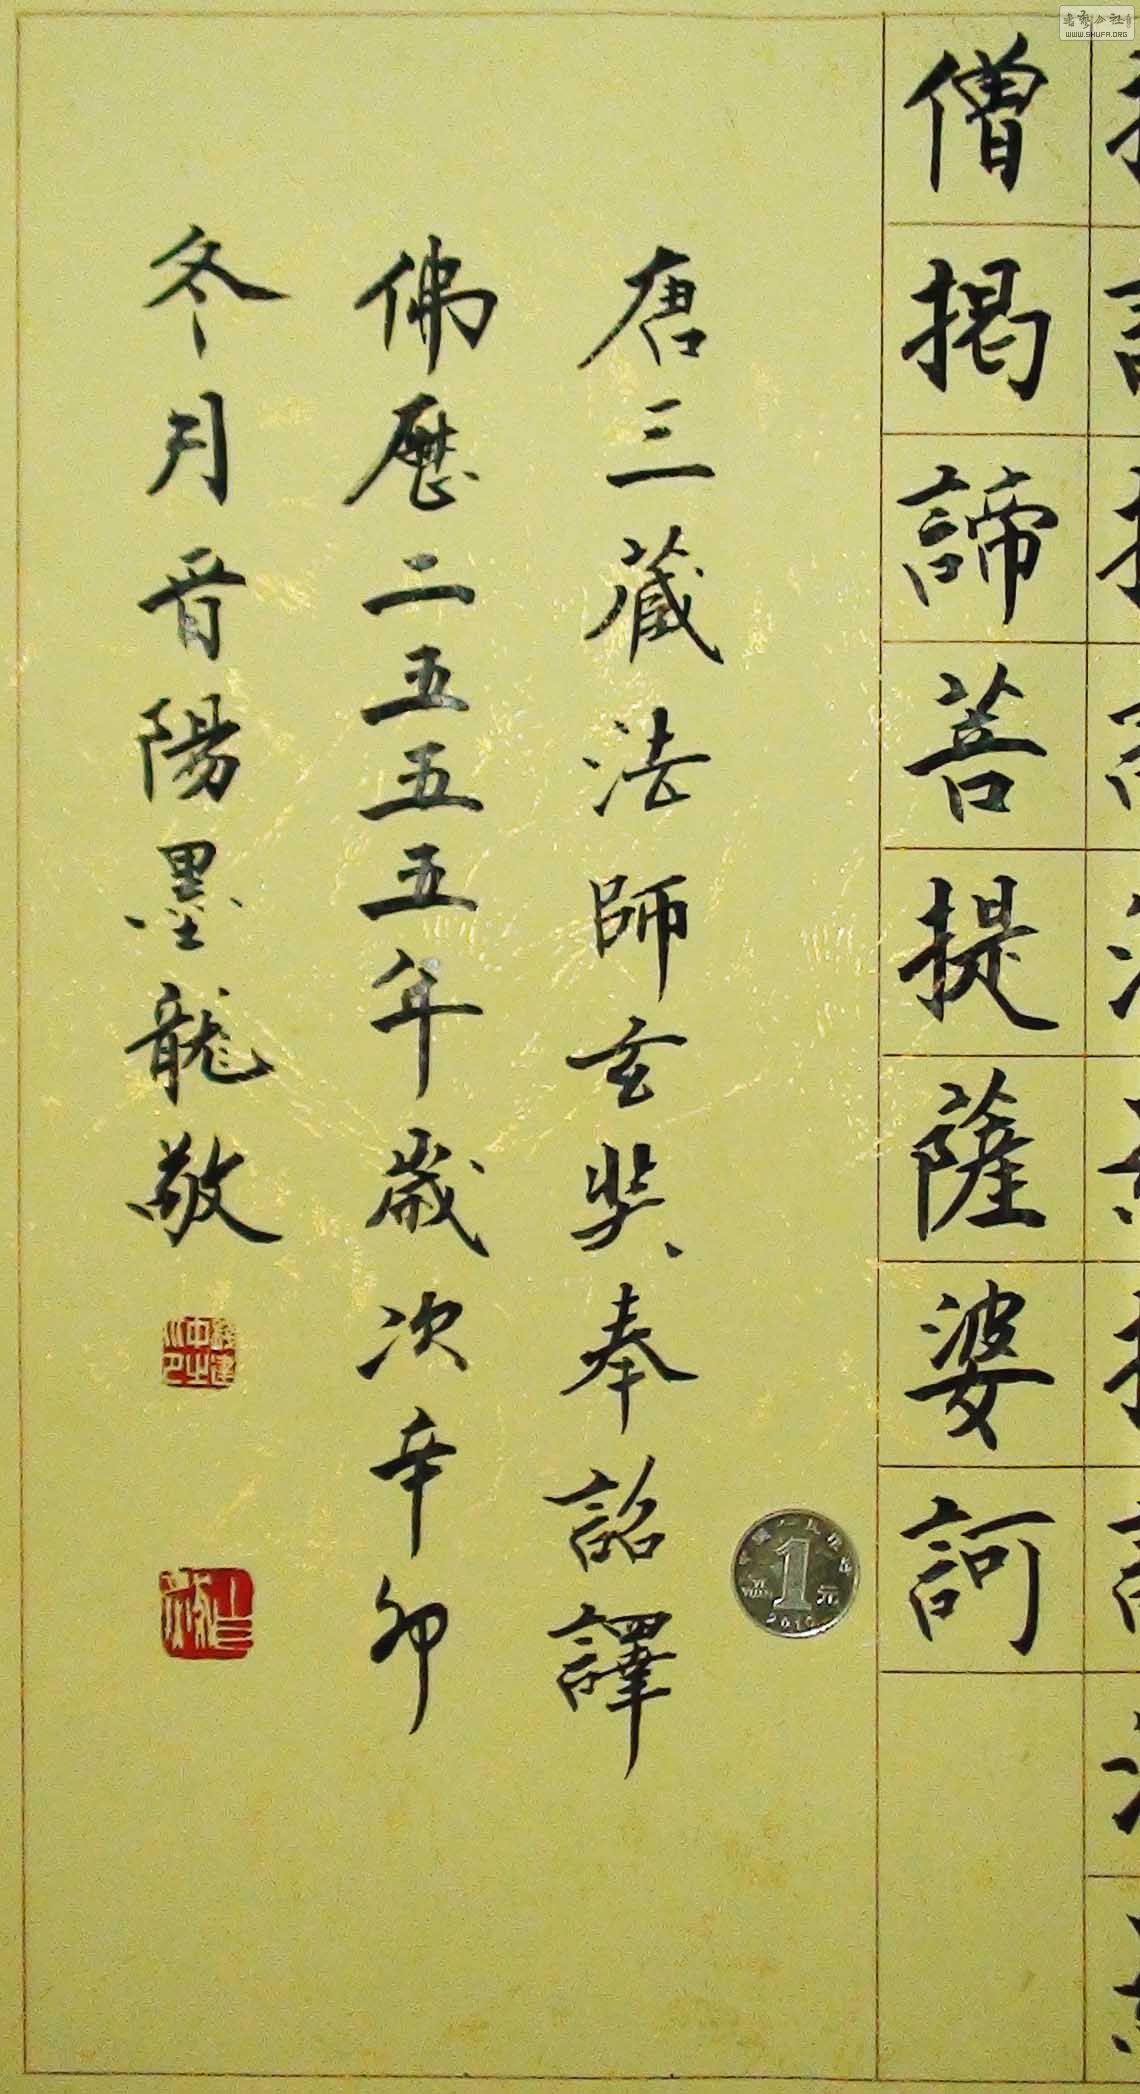 僧揭諦菩提薩婆訶
唐三藏法師玄奘奉詔譯
佛歷二五五五年歲次辛卯
冬月晋陽墨龍敬
1
元
YI YUAN
2010
WWW.SHUFA.ORG